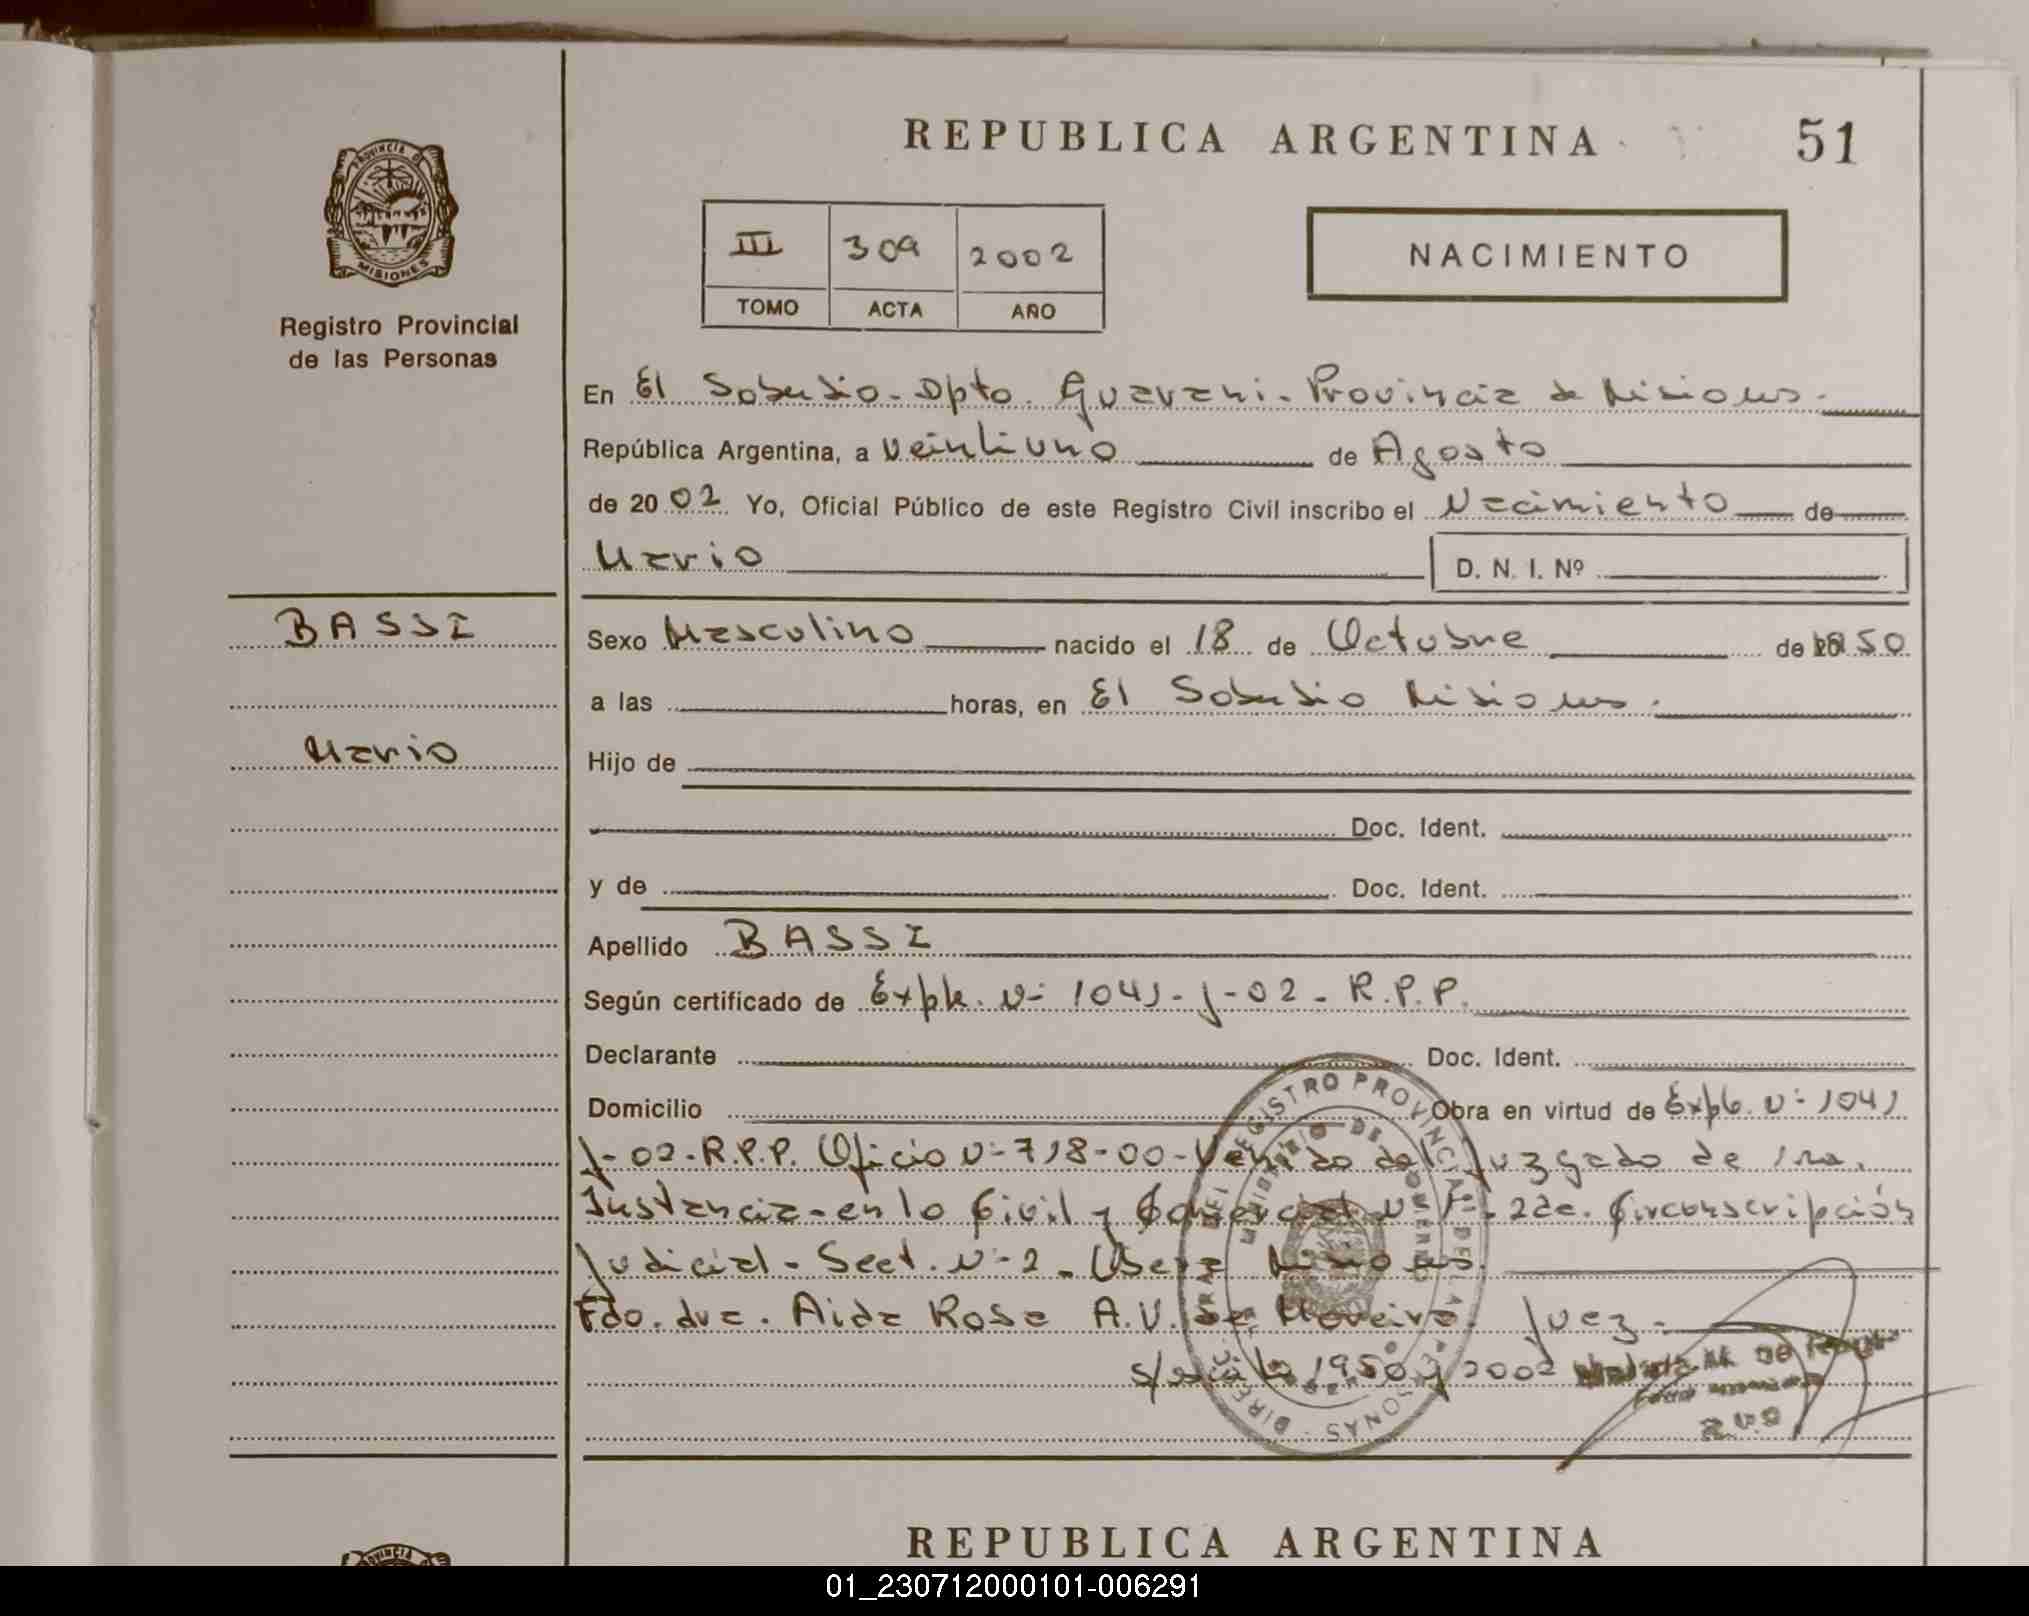 REPUBLICA ARGENTINA
51
PROVINCIA D
MISIONES
Registro Provincial
de las Personas
III 309 2002
TOMO ACTA AÑO
NACIMIENTO
En El Soberbio - Dpto. Guarani - Provincia de Misiones.
República Argentina, a Veintiuno de Agosto
de 2002 Yo, Oficial Público de este Registro Civil inscribo el Nacimiento de
Mario D. N. I. Nº
BASSI
Mario
Sexo Masculino nacido el 18 de Octubre de 1950
a las horas, en El Soberbio Misiones.
Hijo de
Doc. Ident.
y de Doc. Ident.
Apellido BASSI
Según certificado de Expte. Nº 1041-J-02 - R.P.P.
Declarante Doc. Ident.
Domicilio Obra en virtud de Expte. Nº 1041
J-02-R.P.P. Oficio Nº 718-00- Venido del Juzgado de 1ra.
Instancia - en lo Civil y Comercial Nº 1 - 2da. Circunscripción
Judicial - Sect. Nº 2 - Obera Misiones.
Fdo. dra. Aida Rosa A.V. de Moreira. Juez -
1950 y 2002
REGISTRO PROVINCIAL DE LAS PERSONAS
MINISTERIO DE GOBIERNO
REPUBLICA ARGENTINA
01_230712000101-006291